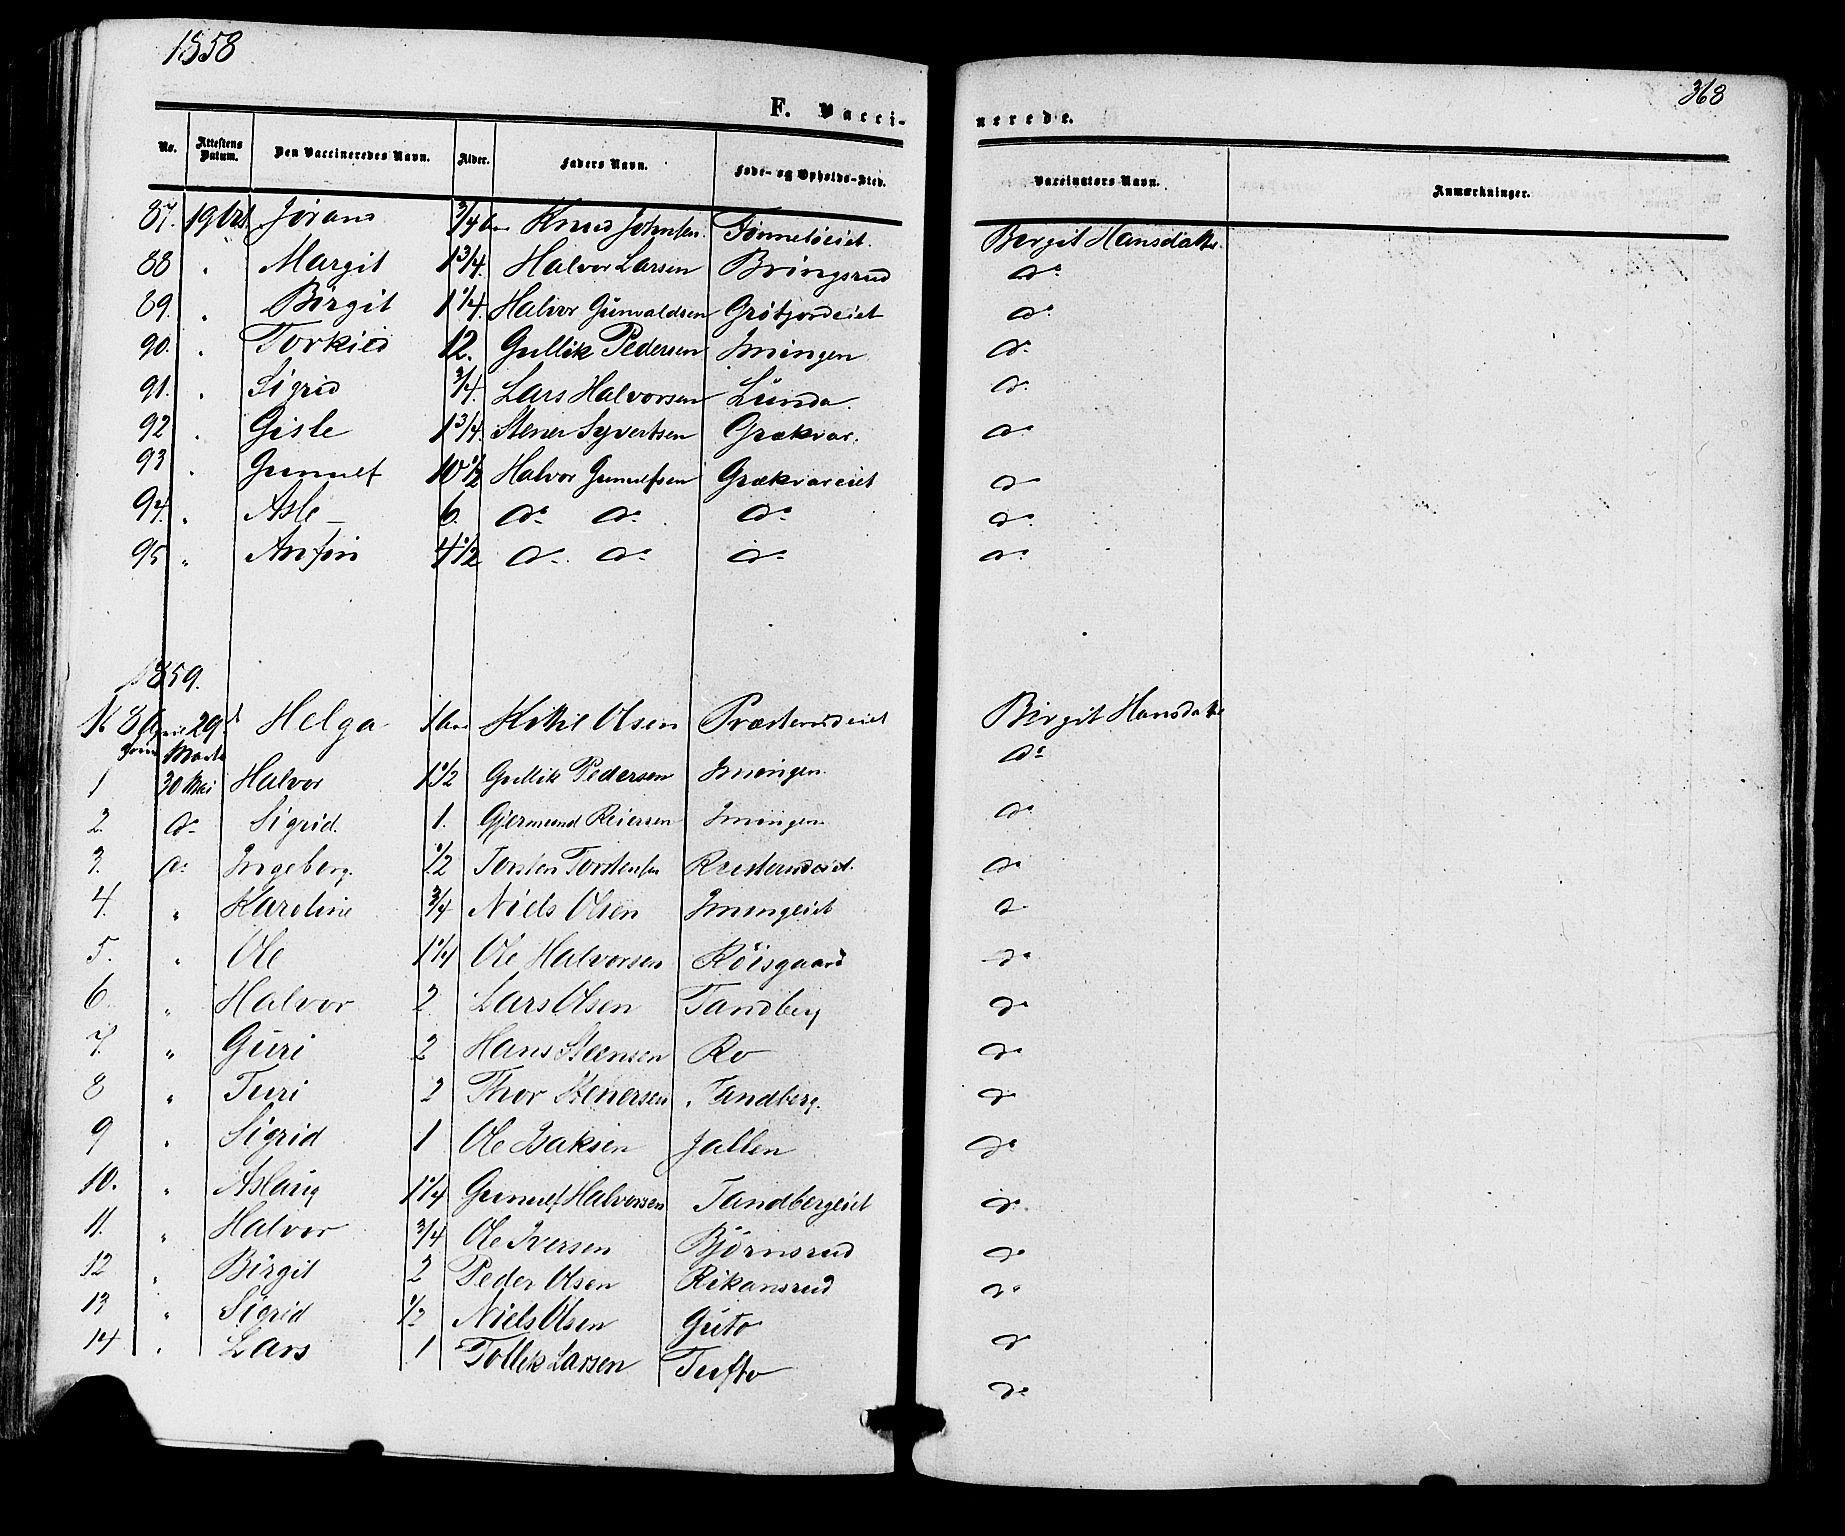 1858
368
F. Vacci-
nerede.
No. Attestens Datum. Den Vaccineredes Navn. Alder. Faders Navn. Føde- og Opholds-Sted. Vaccinators Navn. Anmærkninger.
87. 19 Joran 3/4 Knud Johnsen Birgit Hansdatter
88 " Margit 1 3/4. Halvor Larsen Bringsrud do
89. " Birgit 1 1/4. Halvor Gunvaldsen Grøtjordeiet do
90. " Torkild 12. Gullik Pedersen Imingen do
91. " Sigrid 3/4. Lars Halvorsen Lunda. do
92 " Gisle 1 3/4. Stener Syvertsen Grækvar. do
93 " Gunulf 10 1/2 Halvor Gunulfsen Grækvareiet do
94. " Asle 6. do do do do
95 " Anfin 4 1/2 do do do do
1859.
29 Marts Helga 1 Kittil Olsen Præsterudeiet Birgit Hansdatter
1 30 Mai Halvor 1 1/2 Gullik Pedersen Imingen do
2. do Sigrid. 1. Gjermund Reiersen Imingen do
3. do Ingeberg. 1/2 Torsten Torstensen do
4. " Karoline 3/4 Niels Olsen Imingeiet do
5. " Ole 1 1/4 Ole Halvorsen Røisgaard do
6 " Halvor 2. Lars Olsen Tandberg do
7. " Guri 2 Hans Steensen Ro do
8 " Turi 2 Thor Stenersen Tandberg. do
9 " Sigrid 1 Ole Isaksen Jallen do
10. " Aslaug 1 1/4 Gunulf Halvorsen Tandbergeiet do
11. " Halvor 3/4 Ole Iversen Bjørnsrud do
12 " Birgit 2 Peder Olsen Rikansrud do
13 " Sigrid 1/2 Niels Olsen Guto do
14 " Lars 1 Tollik Larsen Tufto do